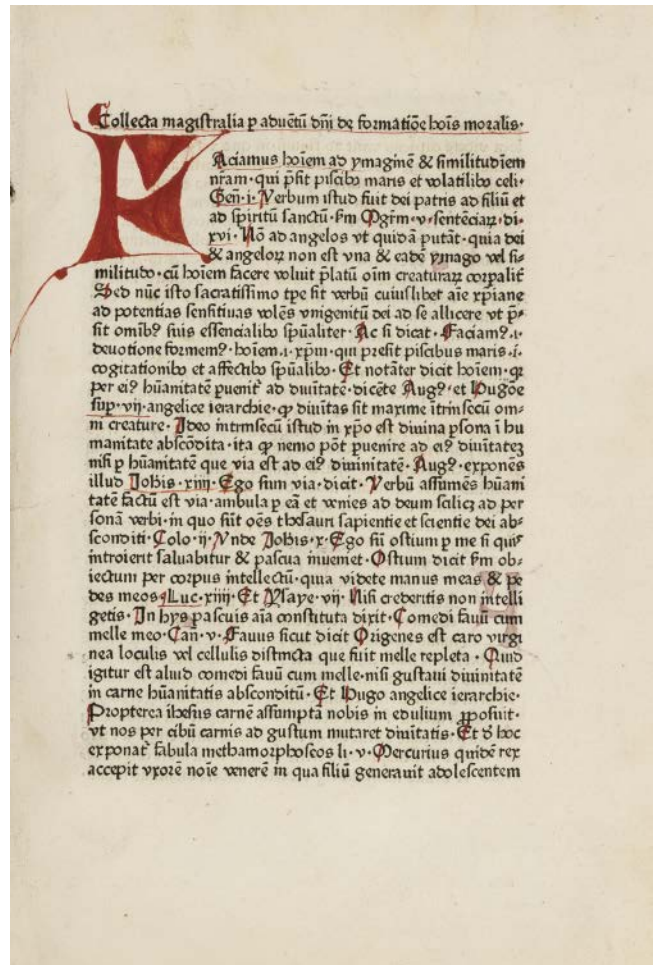 Collecta magistralia p aduētū dñi de formatiōe hoīs moralis·
FAciamus hoīem ad ymaginē & similitudīem
nr̄am·qui p̄sit piscibꝰ maris et volatilibꝰ celi·
Gen̄·i·Verbum istud fuit dei patris ad filiū et
ad spiritū sanctū·ẜm Mgr̄m·v·sentēciaꝝ·di·
xvi·Nō ad angelos vt quidā putāt·quia dei
& angeloꝝ non est vna & eadē ymago vel si
militudo·cū hoīem facere voluit p̄latū oīm creaturaꝝ corpaliť
Sed nūc isto sacratissimo tp̄e sit verbū cuiuslibet aīe xp̄iane
ad potentias sensitiuas volēs vnigenitū dei ad se allicere vt p̄-
sit omībꝰ suis essencialibꝰ sp̄ualiter·Ac si dicat·Faciamꝰ·i·
deuotione formemꝰ·hoīem·i·xp̄m·qui presit piscibus maris·i·
cogitationibꝰ et affectibꝰ sp̄ualibꝰ·Et notāter dicit hoīem·qꝛ
per eiꝰ hūanitatē puenit᷑ ad diuītatē·dicēte Augꝰ·et Hugōe
sup·vij·angelice ierarchie·ꝙ diuītas sit maxime ītrinsecū om-
ni creature·Ideo intrinsecū istud in xp̄o est diuina psona ī hu
manitate abscōdita·ita ꝙ nemo pōt puenire ad eiꝰ diuītateꝫ
nisi p hūanitatē que via est ad eiꝰ diuinitatē·Augꝰ·exponēs
illud Johīs·xiiij·Ego sum via·dicit·Verbū assumēs hūani
tatē factū est via·ambula p eā et venies ad deum scilicꝫ ad per
sonā verbi·in quo sūt oēs thesauri sapientie et scientie dei ab-
sconditi·Colo·ij·Vnde Johīs·x·Ego sū ostium p me si quis
introierit saluabitur & pascua inueniet·Ostium dicit ẜm ob-
iectum per corpus intellectū·quia videte manus meas & pe
des meos Luc·xiiij·Et Ysaye·vij·Nisi credentis non intelli
getis·In hys pascuis aīa constituta dixit·Comedi fauū cum
melle meo·Can̄·v·Fauus sicut dicit Origenes est caro virgi
nea loculis vel cellulis distincta que fuit melle repleta·Quid
igitur est aliud comedi fauū cum melle·nisi gustaui diuinitatē
in carne hūanitatis absconditū·Et Hugo angelice ierarchie·
Propterea ihesus carnē assumptā nobis in edulium ꝓposuit·
vt nos per cibū carnis ad gustum mutaret diuītatis·Et ꝺ hoc
exponat᷑ fabula methamorphoseos li·v·Mercurius quidē rex
accepit vxorē noīe venerē in qua filiū generauit adolescentem